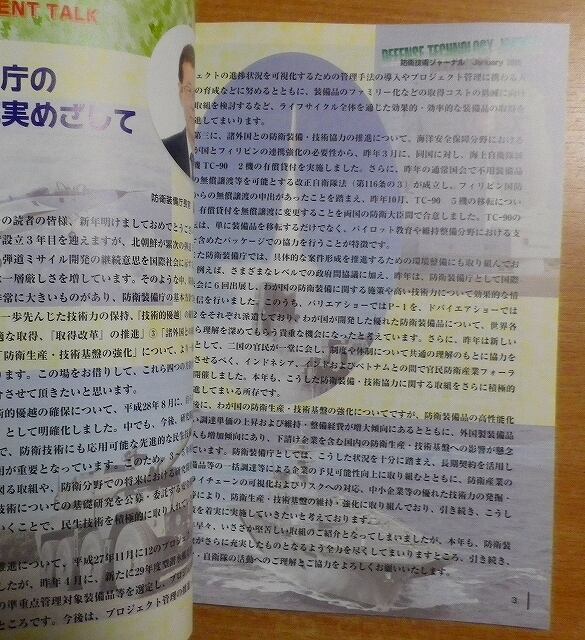 ENT TALK
庁の
実めざして
防衛装備庁長官
の読者の皆様、新年明けましておめでとうござ
設立3年目を迎えますが、北朝鮮が累次の
弾道ミサイル開発の継続意思を国際社会に
一層厳しさを増しています。そのような中、
常に大きいものがあり、防衛装備庁の基本方
一歩先んじた技術力の保持、「技術的優越」の
適な取得、「取得改革」の推進」③「諸外国との
「防衛生産・技術基盤の強化」について、より
ります。この場をお借りして、これら四つの
介させて頂きたいと思います。
術的優越の確保について、平成28年8月に、
」として明確化しました。中でも、今後、研究
て、防衛技術にも応用可能な先進的な民生技
用が重要となっています。このため、
図る取組や、防衛分野での将来における研究
技術についての基礎研究を公募・委託する安
いくことで、民生技術を積極的に取り入れて
推進について、平成27年11月に12のプロジ
したが、昨年4月に、新たに29年度型潜水艦
の準重点管理対象装備品等を選定し、プロ
す。今後は、プロジェクト管理の推進
DEFENSE TECHNOLOGY JOURNAL
防衛技術ジャーナル January
ェクトの進捗状況を可視化するための管理手法の導入やプロジェクト管理に携わる人
の育成などに努めるとともに、装備品のファミリー化などの取得コストの削減に向け
取組を検討するなど、ライフサイクル全体を通じた効果的・効率的な装備品の取得を
進してまいります。
第三に、諸外国との防衛装備・技術協力の推進について、海洋安全保障分野における
が国とフィリピンの連携強化の必要性から、昨年3月に、同国に対し、海上自衛隊練
機TC-90 2機の有償貸付を実施しました。さらに、昨年の通常国会で不用装備品
の無償譲渡等を可能とする改正自衛隊法（第116条の3）が成立し、フィリピン国防
からの無償譲渡の申出があったことを踏まえ、昨年10月、TC-90 5機の移転につい
有償貸付を無償譲渡に変更することを両国の防衛大臣間で合意しました。TC-90の
は、単に装備品を移転するだけでなく、パイロット教育や維持整備分野における支
含めたパッケージでの協力を行うことが特徴です。
た防衛装備庁では、具体的な案件形成を推進するための環境整備にも取り組んでお
例えば、さまざまなレベルでの政府間協議に加え、昨年は、防衛装備庁として国際
会に6回出展し、わが国の防衛に関する施策や高い技術力について効果的な情
信を行いました。このうち、パリエアショーではP-1を、ドバイエアショーでは
をそれぞれ派遣しており、わが国が開発した優れた防衛装備品について、世界各
ら理解を深めてもらう貴重な機会になったと考えています。さらに、昨年は新しい
として、二国の官民が一堂に会し、制度や体制について共通の理解のもとに協力を
させるべく、インドネシア、インドおよびベトナムとの間で官民防衛産業フォーラ
開催しました。本年も、こうした防衛装備・技術協力に関する取組をさらに積極的
進している所存です。
後に、わが国の防衛生産・技術基盤の強化についてですが、防衛装備品の高性能化
い調達単価の上昇および維持・整備経費が増大傾向にあるとともに、外国製装備品
入も増加傾向にあり、下請け企業を含む国内の防衛生産・技術基盤への影響が懸念
ています。防衛装備庁としては、こうした状況を十分に踏まえ、長期契約を活用し
備品等の一括調達等による企業の予見可能性向上に取り組むとともに、防衛産業の
ライチェーンの可視化およびリスクへの対応、中小企業等の優れた技術力の発掘・
等により、防衛生産・技術基盤の維持・強化に取り組んでおり、引き続き、こうし
策を着実に実施していきたいと考えております。
早々、いささか堅苦しい取組のご紹介となってしまいましたが、本年も、防衛装
がさらに充実したものとなるよう全力を尽くしてまいりますところ、引き続き、
・自衛隊の活動へのご理解とご協力をよろしくお願いいたします。
3